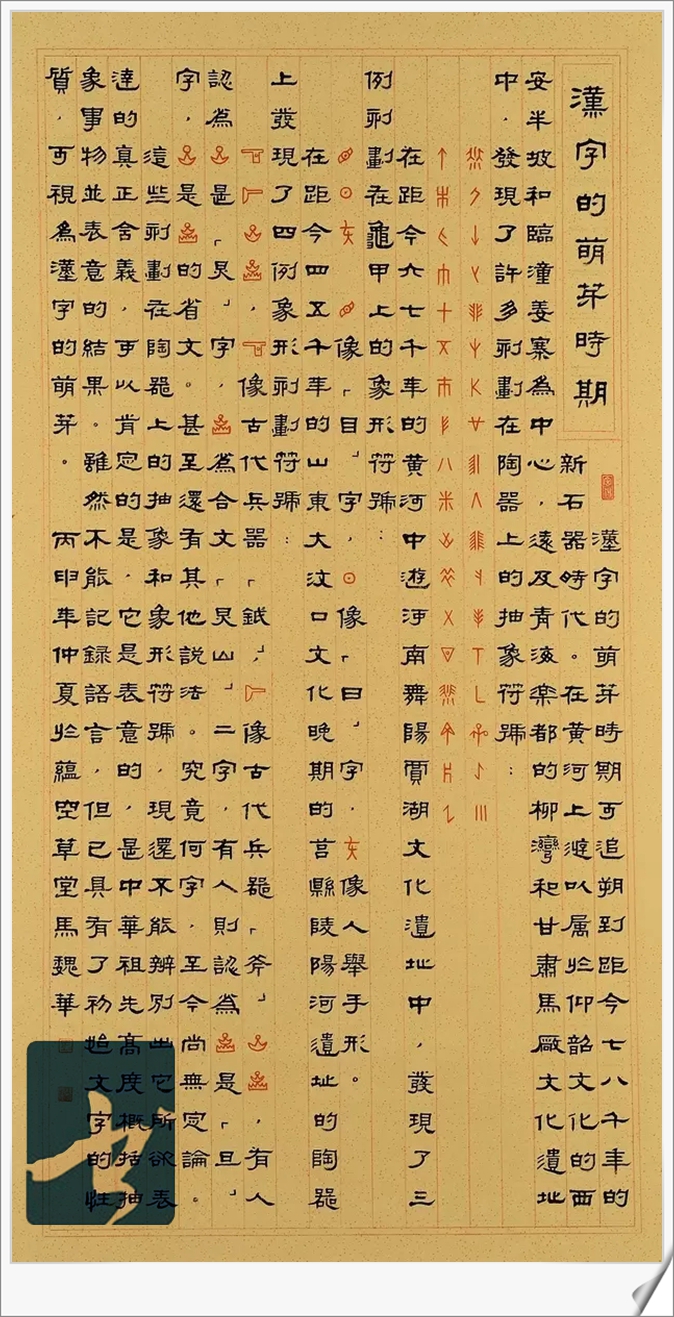 漢字的萌芽時期
漢字的萌芽時期可追朔到距今七八千年的
新石器時代。在黄河上遊以属於仰韶文化的西
安半坡和臨潼姜寨為中心,遠及青海楽都的柳灣和甘肅馬厰文化遺址
中,發現了許多刻劃在陶器上的抽象符號:
在距今六七千年的黄河中遊河南舞陽賈湖文化遺址中,發現了三
例刻劃在龜甲上的象形符號:
像「目」字,⊙像「日」字,像人舉手形。
在距今四五千年的山東大汶口文化晚期的莒縣陵陽河遺址的陶器
上發現了四例象形刻劃符號:
,像古代兵器「鉞」,像古代兵器「斧」,有人
認為是「炅」字,為合文「炅山」二字,有人則認為是「旦」
字,是的省文。甚至還有其他説法。究竟何字,至今尚無定論。
這些刻劃在陶器上的抽象和象形符號,現還不能辨别出它所欲表
達的真正含義,可以肯定的是,它是表意的,是中華祖先高度概括抽
象事物並表意的結果。雖然不能記録語言,但已具有了初始文字的性
質,可視為漢字的萌芽。丙申年仲夏於蘊空草堂馬魏華